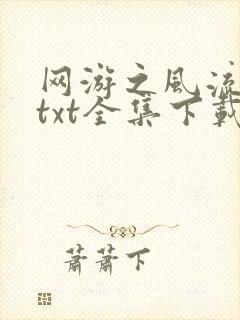 网游之风流
txt全集下载
萧萧下